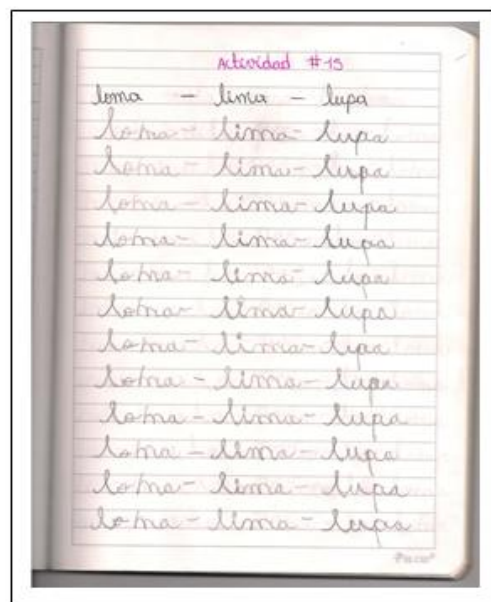 Actividad #15
loma - lima - lupa
loma - lima - lupa
loma - lima - lupa
loma - lima - lupa
loma - lima - lupa
loma - lima - lupa
loma - lima - lupa
loma - lima - lupa
loma - lima - lupa
loma - lima - lupa
loma - lima - lupa
loma - lima - lupa
loma - lima - lupa